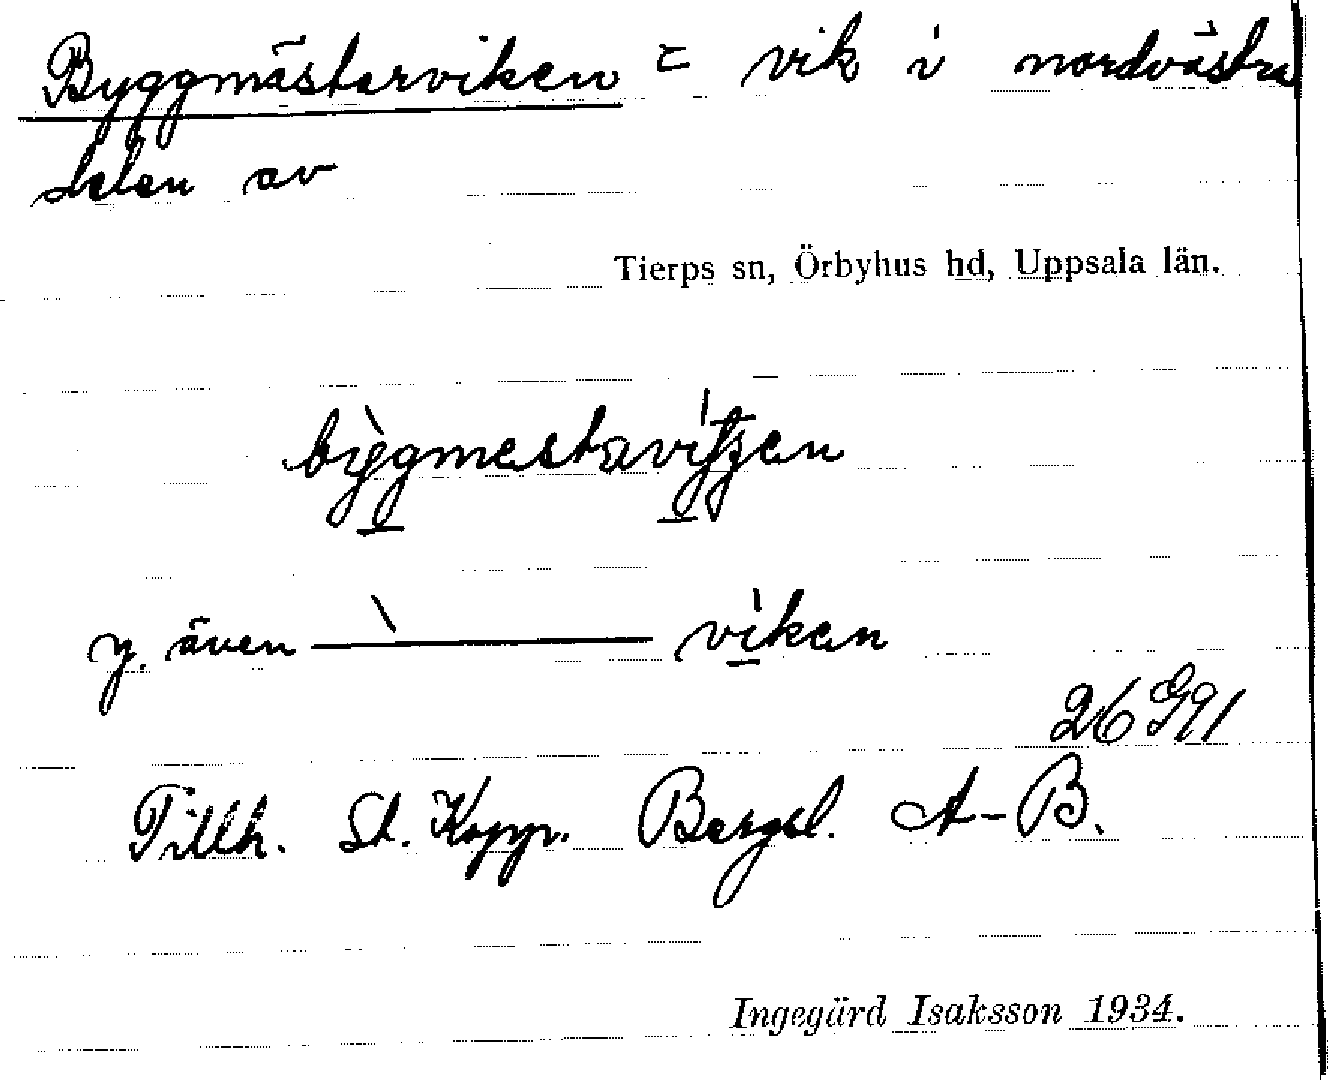 Byggmästarviken = vik i nordvästra
delen av
Tierps sn, Örbyhus hd, Uppsala län.
y. även ——— viken
26 G91
Tillh. St. Kopp. Bergsl. A-B.
Ingegärd Isaksson 1934.